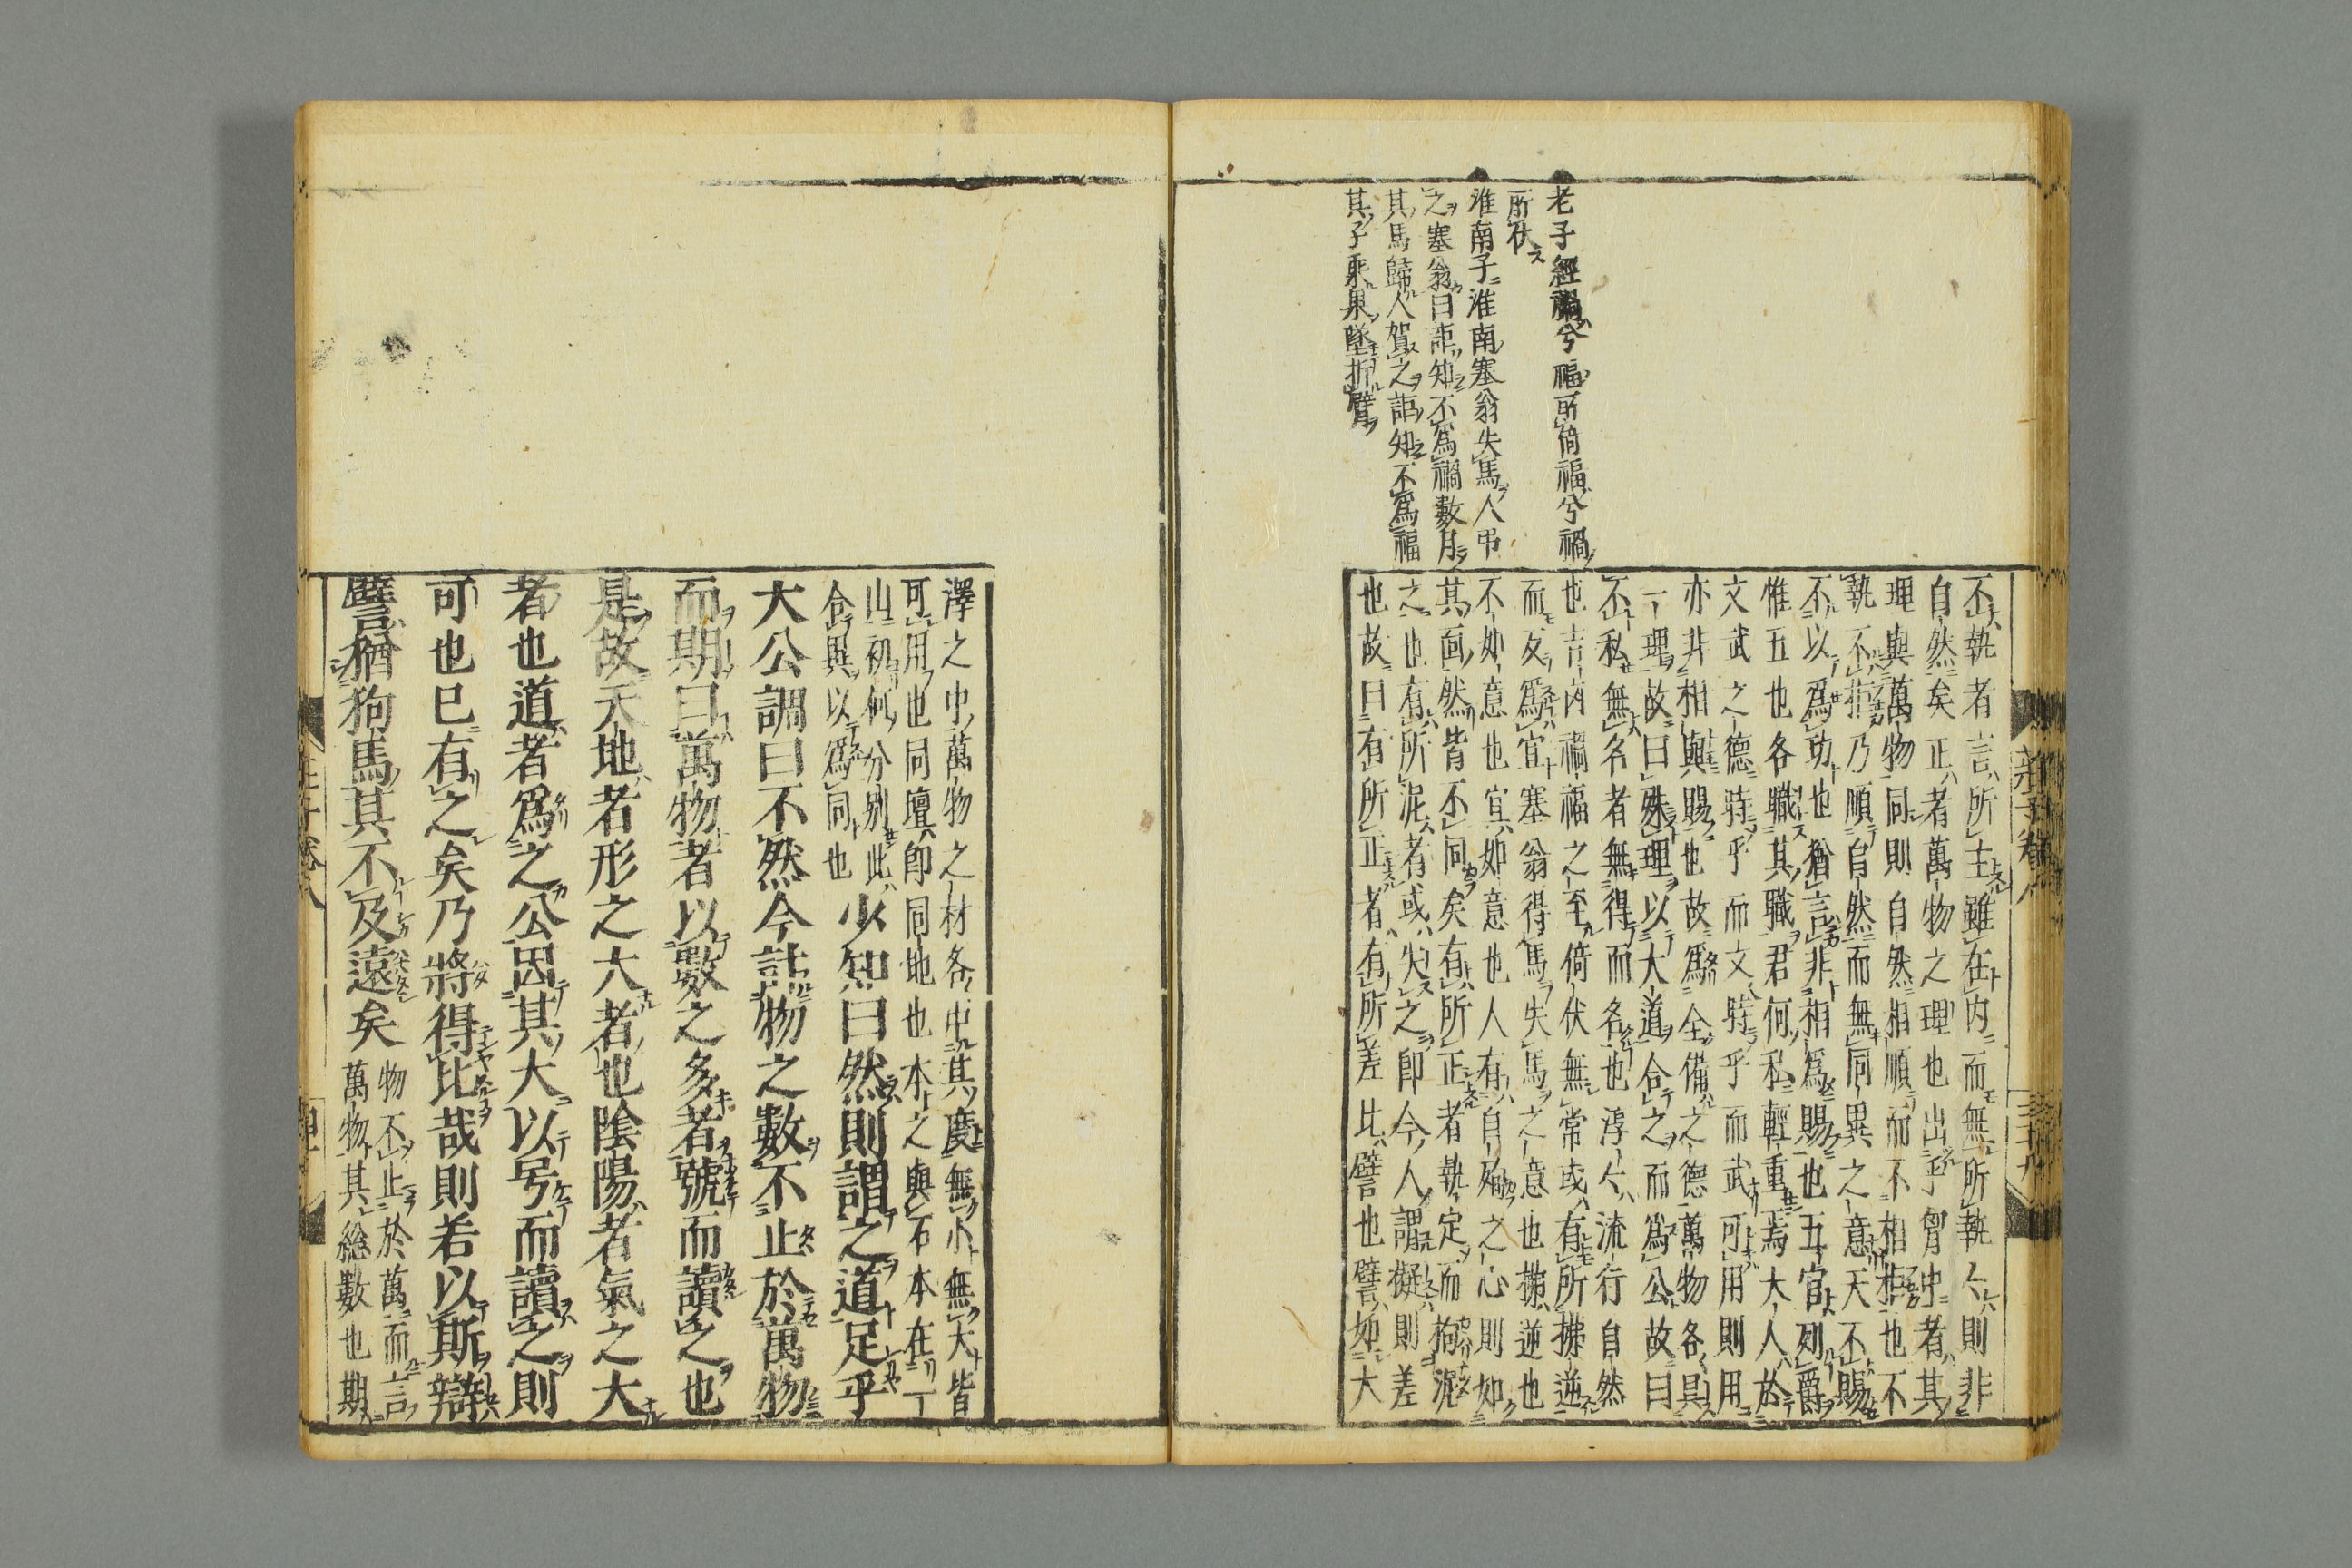 老子經禍兮福所倚福兮禍
所伏
淮南子淮南塞翁失馬人弔
之塞翁曰詎知不爲禍數月
其馬歸人賀之詎知不爲福
其子乘果墜折臂
不執者言所主雖在内而無所執亽則非
自然矣正者萬物之理也出乎胷中者其
理與萬物同則自然相順而不相拒也不
執不拒乃順自然而無同異之意天不賜
不以爲功也猶言非相爲賜也五官列爵
惟五也各職其職君何私輕重焉大人於
文武之德時乎而文時乎而武可用則用
亦非相與賜也故爲全備之德萬物各具
一理故曰殊理以大道合之而爲公故曰
不私無名者無得而名也淳亽流行自然
也吉凶禍福之至倚伏無常或有所拂逆
而反爲宜塞翁得馬失馬之意也拂逆也
不如意也宜如意也人有自殉之心則如
其面然皆不同矣有所正者執定而拘泥
之也有所泥者或失之即今人謂擬則差
也故曰有所正者有所差比譬也譬如大
莊子卷八
三十九
澤之中萬物之材各中其度無小無大皆
可用也同壇即同地也木之與石本在一
山初何分别此合異以爲同也
少知曰然則謂之道足乎
大公調曰不然今計物之數不止於萬物
而期曰萬物者以數之多者號而讀之也
是故天地者形之大者也陰陽者氣之大
者也道者爲之公因其大以号而讀之則
可也已有之矣乃將得比哉則若以斯辯
譬猶狗馬其不及遠矣
物不止於萬而言
萬物其總數也期